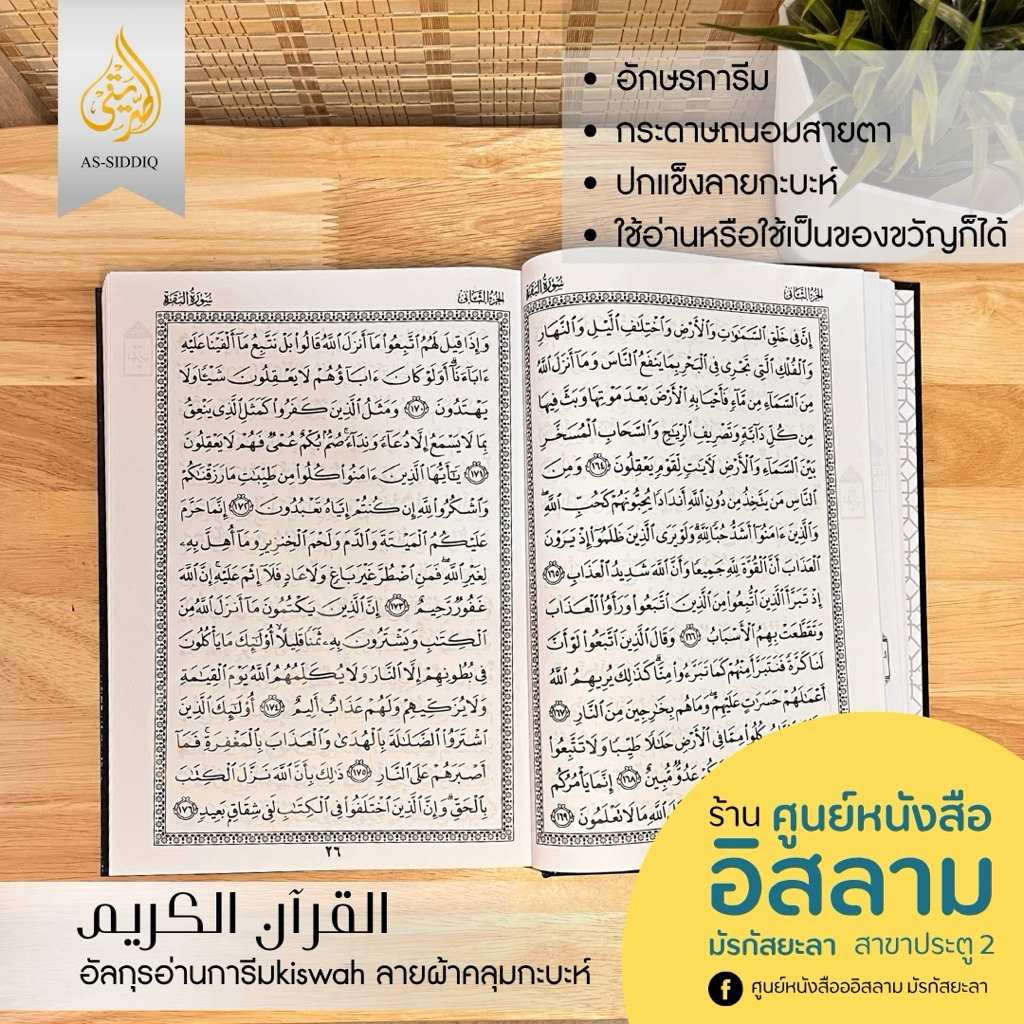 الصديق
AS-SIDDIQ
• อักษรการีม
• กระดาษถนอมสายตา
• ปกแข็งลายกะบะห์
• ใช้อ่านหรือใช้เป็นของขวัญก็ได้
سُورَةُ البَقَرَة الجُزءُ الثَّانِي
إِنَّ فِي خَلْقِ ٱلسَّمَٰوَٰتِ وَٱلْأَرْضِ وَٱخْتِلَٰفِ ٱلَّيْلِ وَٱلنَّهَارِ
وَٱلْفُلْكِ ٱلَّتِي تَجْرِي فِي ٱلْبَحْرِ بِمَا يَنفَعُ ٱلنَّاسَ وَمَآ أَنزَلَ ٱللَّهُ
مِنَ ٱلسَّمَآءِ مِن مَّآءٍ فَأَحْيَا بِهِ ٱلْأَرْضَ بَعْدَ مَوْتِهَا وَبَثَّ فِيهَا
مِن كُلِّ دَآبَّةٍ وَتَصْرِيفِ ٱلرِّيَٰحِ وَٱلسَّحَابِ ٱلْمُسَخَّرِ
بَيْنَ ٱلسَّمَآءِ وَٱلْأَرْضِ لَءَايَٰتٍ لِّقَوْمٍ يَعْقِلُونَ ١٦٤ وَمِنَ
ٱلنَّاسِ مَن يَتَّخِذُ مِن دُونِ ٱللَّهِ أَندَادًا يُحِبُّونَهُمْ كَحُبِّ ٱللَّهِۖ
وَٱلَّذِينَ ءَامَنُوٓا۟ أَشَدُّ حُبًّا لِّلَّهِۗ وَلَوْ يَرَى ٱلَّذِينَ ظَلَمُوٓا۟ إِذْ يَرَوْنَ
ٱلْعَذَابَ أَنَّ ٱلْقُوَّةَ لِلَّهِ جَمِيعًا وَأَنَّ ٱللَّهَ شَدِيدُ ٱلْعَذَابِ ١٦٥
إِذْ تَبَرَّأَ ٱلَّذِينَ ٱتُّبِعُوا۟ مِنَ ٱلَّذِينَ ٱتَّبَعُوا۟ وَرَأَوُا۟ ٱلْعَذَابَ
وَتَقَطَّعَتْ بِهِمُ ٱلْأَسْبَابُ ١٦٦ وَقَالَ ٱلَّذِينَ ٱتَّبَعُوا۟ لَوْ أَنَّ
لَنَا كَرَّةً فَنَتَبَرَّأَ مِنْهُمْ كَمَا تَبَرَّءُوا۟ مِنَّاۗ كَذَٰلِكَ يُرِيهِمُ ٱللَّهُ
أَعْمَٰلَهُمْ حَسَرَٰتٍ عَلَيْهِمْۖ وَمَا هُم بِخَٰرِجِينَ مِنَ ٱلنَّارِ ١٦٧
كُلُوا۟ مِمَّا فِي ٱلْأَرْضِ حَلَٰلًا طَيِّبًا وَلَا تَتَّبِعُوا۟
عَدُوٌّ مُّبِينٌ ١٦٨ إِنَّمَا يَأْمُرُكُم
ٱللَّهِ مَا لَا تَعْلَمُونَ ١٦٩
سُورَةُ البَقَرَة الجُزءُ الثَّانِي
وَإِذَا قِيلَ لَهُمُ ٱتَّبِعُوا۟ مَآ أَنزَلَ ٱللَّهُ قَالُوا۟ بَلْ نَتَّبِعُ مَآ أَلْفَيْنَا عَلَيْهِ
ءَابَآءَنَآۗ أَوَلَوْ كَانَ ءَابَآؤُهُمْ لَا يَعْقِلُونَ شَيْـًٔا وَلَا
يَهْتَدُونَ ١٧٠ وَمَثَلُ ٱلَّذِينَ كَفَرُوا۟ كَمَثَلِ ٱلَّذِي يَنْعِقُ
بِمَا لَا يَسْمَعُ إِلَّا دُعَآءً وَنِدَآءًۚ صُمٌّۢ بُكْمٌ عُمْيٌ فَهُمْ لَا يَعْقِلُونَ
١٧١ يَٰٓأَيُّهَا ٱلَّذِينَ ءَامَنُوا۟ كُلُوا۟ مِن طَيِّبَٰتِ مَا رَزَقْنَٰكُمْ
وَٱشْكُرُوا۟ لِلَّهِ إِن كُنتُمْ إِيَّاهُ تَعْبُدُونَ ١٧٢ إِنَّمَا حَرَّمَ
عَلَيْكُمُ ٱلْمَيْتَةَ وَٱلدَّمَ وَلَحْمَ ٱلْخِنزِيرِ وَمَآ أُهِلَّ بِهِۦ
لِغَيْرِ ٱللَّهِۖ فَمَنِ ٱضْطُرَّ غَيْرَ بَاغٍ وَلَا عَادٍ فَلَآ إِثْمَ عَلَيْهِۚ إِنَّ ٱللَّهَ
غَفُورٌ رَّحِيمٌ ١٧٣ إِنَّ ٱلَّذِينَ يَكْتُمُونَ مَآ أَنزَلَ ٱللَّهُ مِنَ
ٱلْكِتَٰبِ وَيَشْتَرُونَ بِهِۦ ثَمَنًا قَلِيلًاۙ أُو۟لَٰٓئِكَ مَا يَأْكُلُونَ
فِي بُطُونِهِمْ إِلَّا ٱلنَّارَ وَلَا يُكَلِّمُهُمُ ٱللَّهُ يَوْمَ ٱلْقِيَٰمَةِ
وَلَا يُزَكِّيهِمْ وَلَهُمْ عَذَابٌ أَلِيمٌ ١٧٤ أُو۟لَٰٓئِكَ ٱلَّذِينَ
ٱشْتَرَوُا۟ ٱلضَّلَٰلَةَ بِٱلْهُدَىٰ وَٱلْعَذَابَ بِٱلْمَغْفِرَةِۚ فَمَآ
أَصْبَرَهُمْ عَلَى ٱلنَّارِ ١٧٥ ذَٰلِكَ بِأَنَّ ٱللَّهَ نَزَّلَ ٱلْكِتَٰبَ
بِٱلْحَقِّۗ وَإِنَّ ٱلَّذِينَ ٱخْتَلَفُوا۟ فِي ٱلْكِتَٰبِ لَفِي شِقَاقٍۭ بَعِيدٍ ١٧٦
٢٦
القرآن الكريم
อัลกุรอ่านการีมkiswah ลายผ้าคลุมกะบะห์
ร้าน ศูนย์หนังสือ
อิสลาม
มัรกัสยะลา สาขาประตู 2
ศูนย์หนังสืออิสลาม มัรกัสยะลา